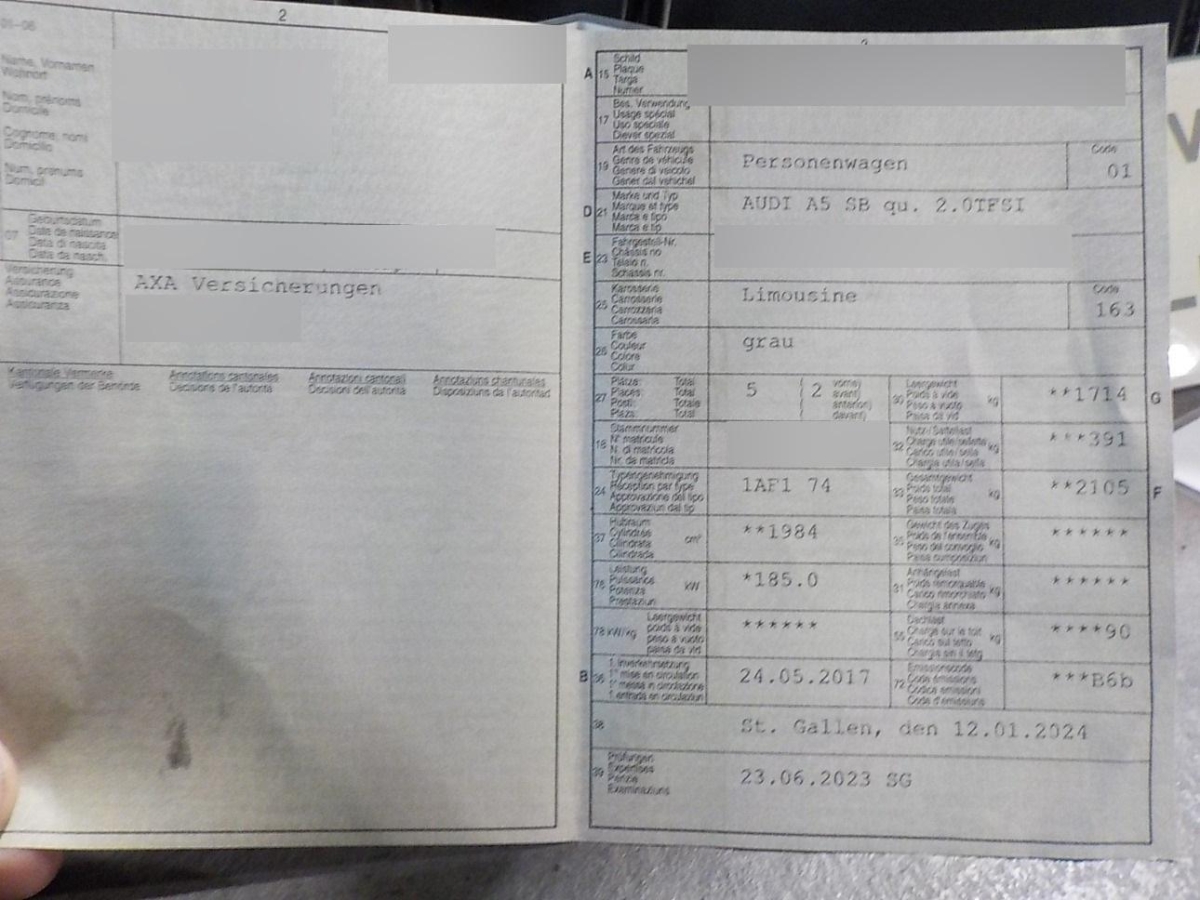 2
01-06
Name, Vornamen
Wohnort
Nom, prénoms
Domicile
Cognome, nomi
Domicilio
Num, prenums
Domicil
07
Geburtsdatum
Date de naissance
Data di nascita
Data da nasch.
Versicherung
Assurance
Assicurazione
Assicuranza
AXA Versicherungen
Kantonale Vermerke
Verfügungen der Behörde
Annotations cantonales
Décisions de l'autorité
Annotazioni cantonali
Decisioni dell'autorità
Annotaziuns chantunalas
Disposiziuns da l'autoritad
A 15
Schild
Plaque
Targa
Numer
17
Bes. Verwendung
Usage spécial
Uso speciale
Diever spezial
19
Art des Fahrzeugs
Genre de véhicule
Genere di veicolo
Gener dal vehichel
Personenwagen
Code
01
D 21
Marke und Typ
Marque et type
Marca e tipo
Marca e tip
AUDI A5 SB qu. 2.0TFSI
E 23
Fahrgestell-Nr.
Châssis no
Telaio n.
Schassis nr.
25
Karosserie
Carrosserie
Carrozzeria
Carossaria
Limousine
Code
163
26
Farbe
Couleur
Colore
Colur
grau
27
Plätze: Total
Places: Total
Posti: Totale
Plazs: Total
5 ( 2 vorne)
( avant)
( anteriori)
( davant)
30
Leergewicht
Poids à vide
Peso a vuoto
Paisa da vid
kg
**1714
G
18
Stammnummer
N° matricule
N. di matricola
Nr. da matricla
32
Nutz-/Sattellast
Charge utile/sellette
Carico utile/sella
Chargia utila/sella
kg
***391
24
Typengenehmigung
Réception par type
Approvazione del tipo
Approvaziun dal tip
1AF1 74
33
Gesamtgewicht
Poids total
Peso totale
Paisa totala
kg
**2105
F
37
Hubraum
Cylindrée
Cilindrata
Cilindrada
cm³
**1984
35
Gewicht des Zuges
Poids de l'ensemble
Peso del convoglio
Paisa cumposiziun
kg
******
76
Leistung
Puissance
Potenza
Prestaziun
kW
*185.0
31
Anhängelast
Poids remorquable
Carico rimorchiato
Chargia annexa
kg
******
78 kW/kg
Leergewicht
poids à vide
peso a vuoto
paisa da vid
******
55
Dachlast
Charge sur le toit
Carico sul tetto
Chargia sin il tetg
kg
****90
B 36
1. Inverkehrsetzung
1re mise en circulation
1a messa in circolazione
1. entrada en circulaziun
24.05.2017
72
Emissionscode
Code émissions
Codice emissioni
Code d'emissiuns
***B6b
38
St. Gallen, den 12.01.2024
39
Prüfungen
Expertises
Perizie
Examinaziuns
23.06.2023 SG